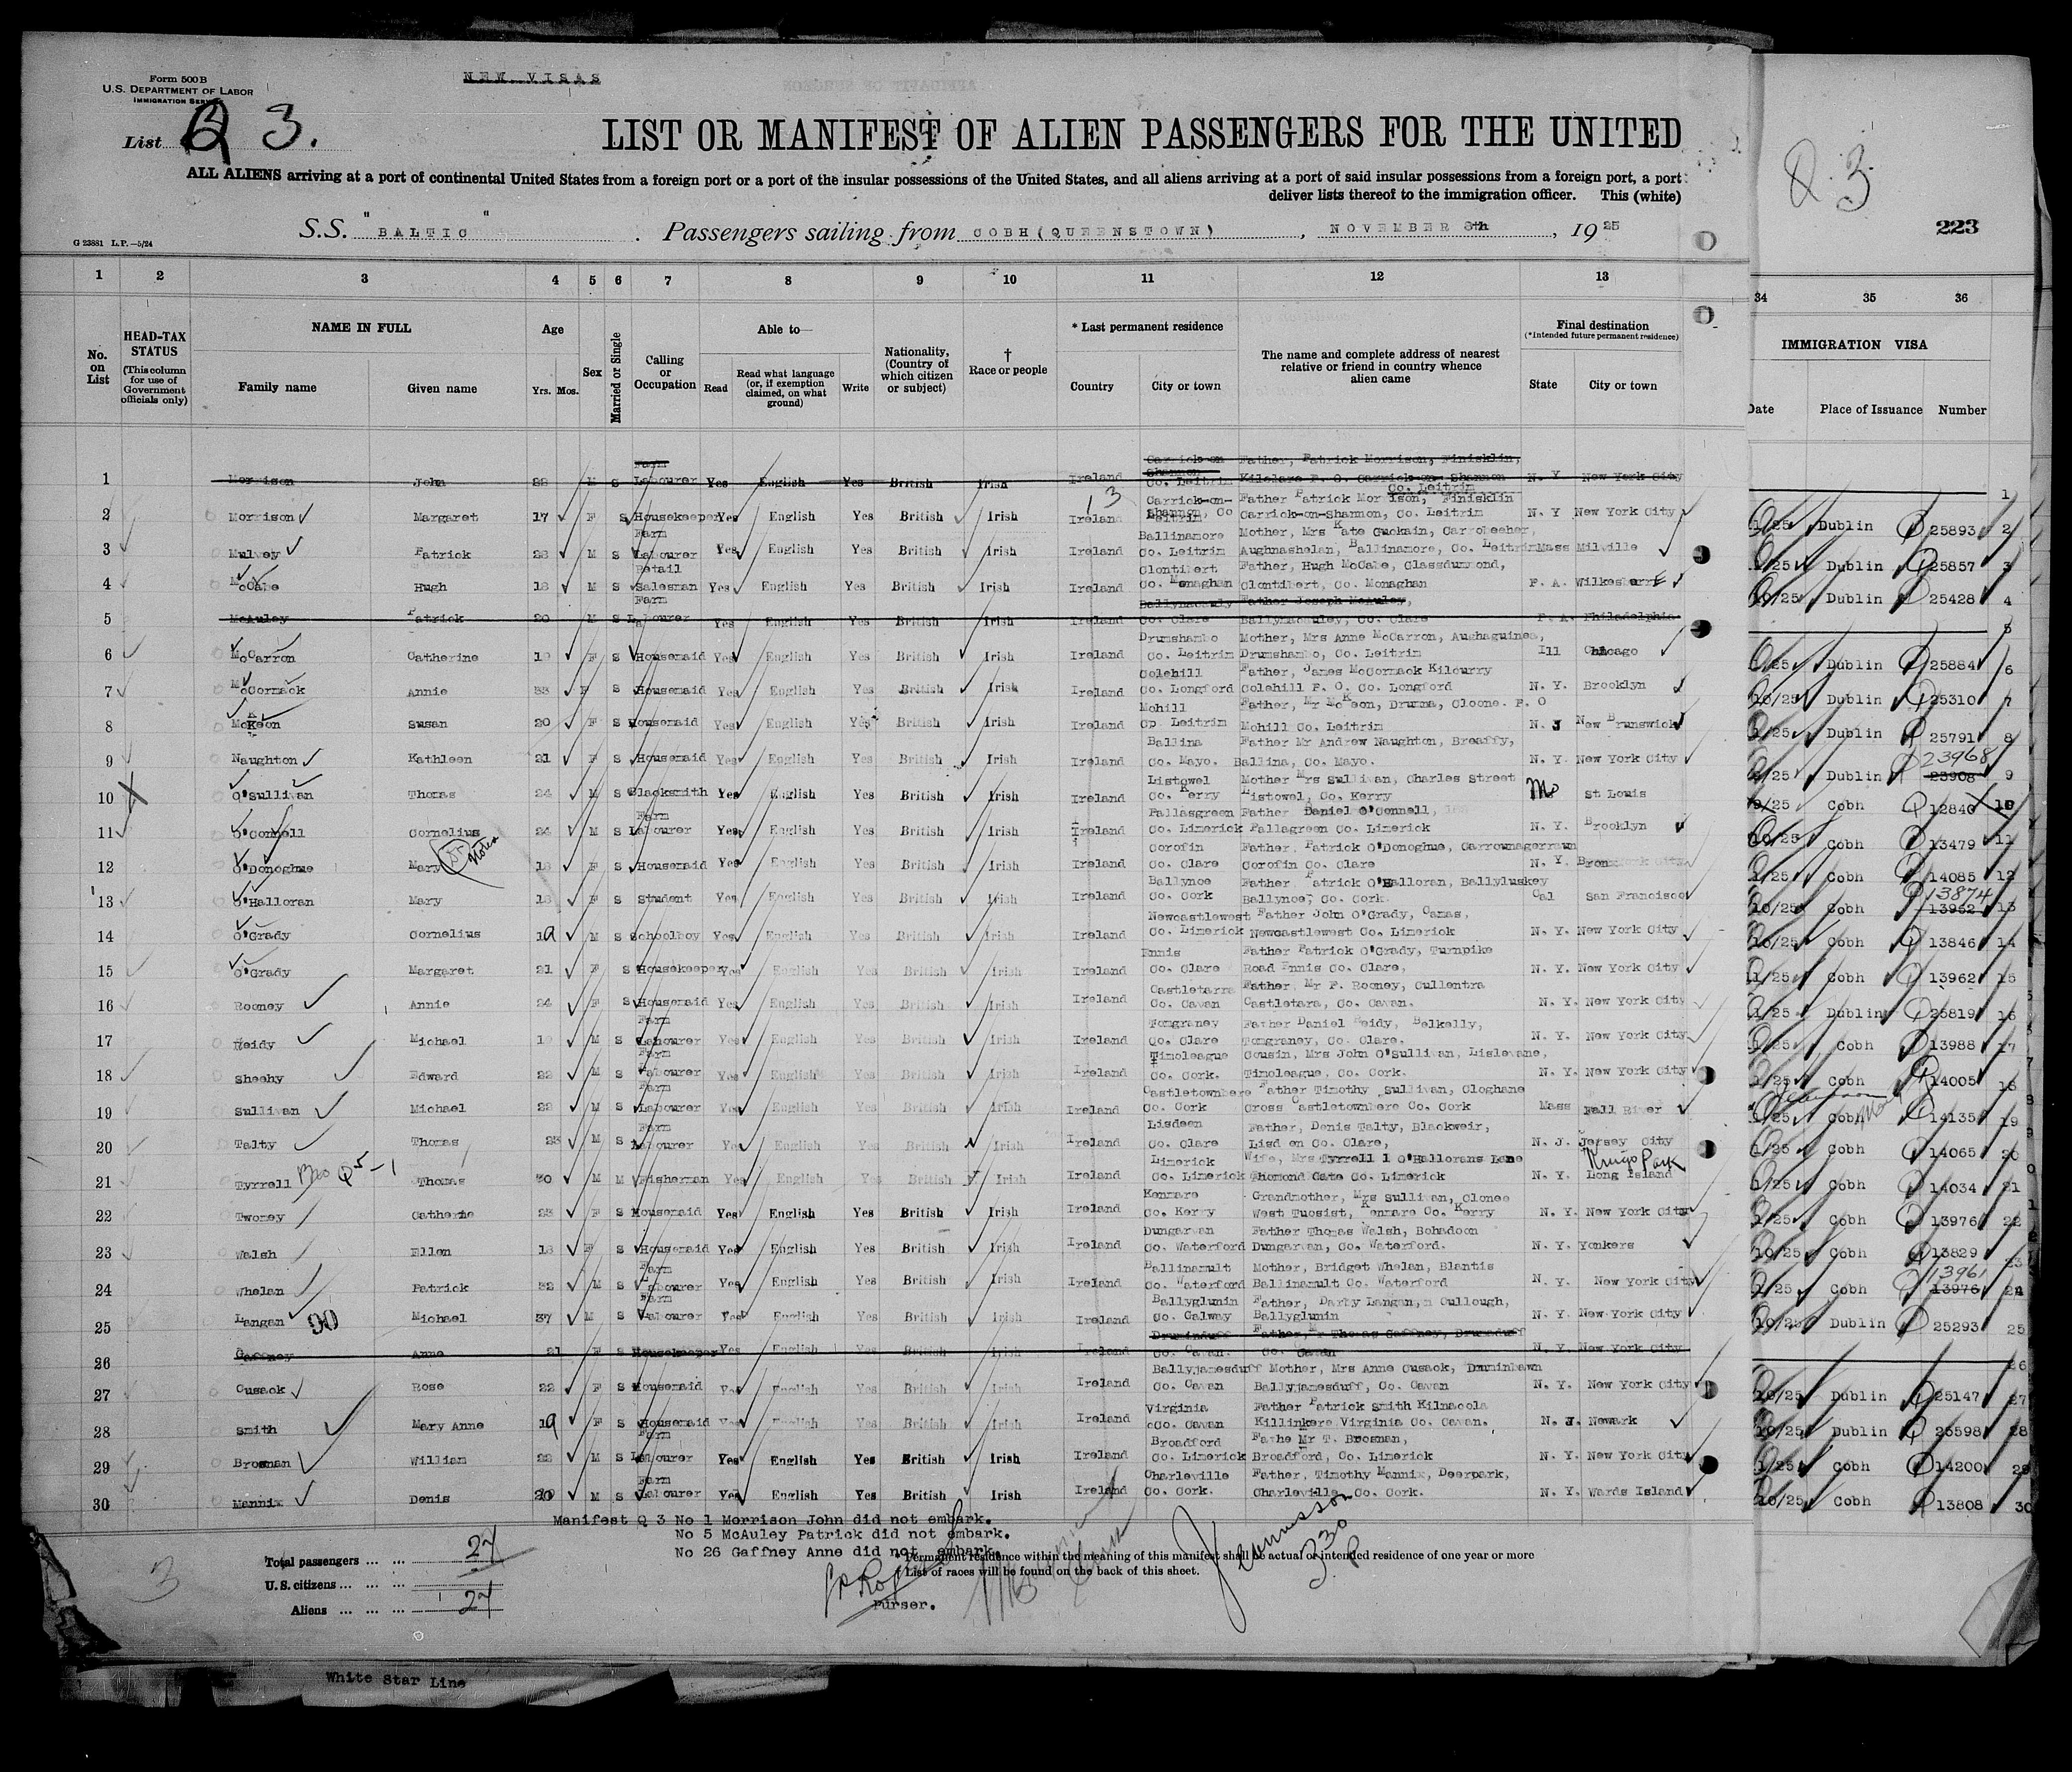 Form 500 B
U.S. DEPARTMENT OF LABOR
IMMIGRATION SERVICE
NEW VISAS
List Q 3.
LIST OR MANIFEST OF ALIEN PASSENGERS FOR THE UNITED
ALL ALIENS arriving at a port of continental United States from a foreign port or a port of the insular possessions of the United States, and all aliens arriving at a port of said insular possessions from a foreign port, a port
deliver lists thereof to the immigration officer. This (white)
Q. 3.
223
G 23881 L.P.—5/24
S.S. "BALTIC" . Passengers sailing from COBH (QUEENSTOWN) , NOVEMBER 8th , 1925
1 2 3 4 5 6 7 8 9 10 11 12 13 34 35 36
No. on List
HEAD-TAX STATUS (This column for use of Government officials only)
NAME IN FULL
Family name Given name
Age
Yrs. Mos.
Sex
Married or Single
Calling or Occupation
Able to—
Read Read what language (or, if exemption claimed, on what ground) Write
Nationality, (Country of which citizen or subject)
† Race or people
* Last permanent residence
Country City or town
The name and complete address of nearest relative or friend in country whence alien came
Final destination
(*Intended future permanent residence)
State City or town
IMMIGRATION VISA
Date Place of Issuance Number
1 Morrison John 28 M S Farm Labourer Yes English Yes British Irish Ireland Carrick-on Shannon Co. Leitrim Father, Patrick Morrison, Finisklin, Kilclare P. O. Carrick-on-Shannon Co. Leitrim N. Y New York City 1
2 Morrison Margaret 17 F S Housekeeper Yes English Yes British Irish Ireland Carrick-on-Shannon, Co Leitrim Father Patrick Morrison, Finisklin Carrick-on-Shannon, Co. Leitrim N. Y New York City 1/25 Dublin Q 25893 2
3 Mulvey Patrick 28 M S Farm Labourer Yes English Yes British Irish Ireland Ballinamore Co. Leitrim Mother, Mrs Kate Guckain, Aughnashelan, Ballinamore, Co. Leitrim Mass Milville 1/25 Dublin Q 25857 3
4 McCabe Hugh 18 M S Retail Salesman Yes English Yes British Irish Ireland Clontibert Co. Monaghan Father, Hugh McCabe, Glassdummond, Clontibert, Co. Monaghan P. A. Wilkesbarre 10/25 Dublin Q 25428 4
5 McAuley Patrick 20 M S Farm Labourer Yes English Yes British Irish Ireland Ballymacauly Co. Clare Father Joseph McAuley, Ballymacauley, Co. Clare P. A. Philadelphia 5
6 McCarron Catherine F S Housemaid Yes English Yes British Irish Ireland Drumshambo Co. Leitrim Mother, Mrs Anne McCarron, Aughaguinea, Drumshambo, Co. Leitrim Ill Chicago 1/25 Dublin Q 25884 6
7 McCormack Annie 33 F S Housemaid Yes English Yes British Irish Ireland Colehill Co. Longford Father, James McCormack Kilcurry Colehill P. O. Co. Longford N. Y. Brooklyn 10/25 Dublin Q 25310 7
8 McKeon Susan 20 F S Housemaid Yes English Yes British Irish Ireland Mohill Co. Leitrim Father, Mr McKeon, Drumma, Cloone. P. O Mohill Co. Leitrim N. J New Brunswick 1/25 Dublin Q 25791 8
9 Naughton Kathleen 21 F S Housemaid Yes English Yes British Irish Ireland Ballina Co. Mayo. Father Mr Andrew Naughton, Breaffy, Ballina, Co. Mayo. N. Y. New York City Dublin Q 23908 23968 9
10 O'Sullivan Thomas 24 M S Blacksmith Yes English Yes British Irish Ireland Listowel Co. Kerry Mother Mrs Sullivan, Charles Street Listowel, Co. Kerry Mo St Louis 9/25 Cobh Q 12840 10
11 O'Connell Cornelius 24 M S Farm Labourer Yes English Yes British Irish Ireland Pallasgreen Co. Limerick Father Daniel O'Connell, Pallagreen Co. Limerick N. Y. Brooklyn 10/25 Cobh Q 13479 11
12 O'Donoghue Mary 18 F S Housemaid Yes English Yes British Irish Ireland Corofin Co. Clare Father, Patrick O'Donoghue, Carrownagerraun Corofin Co. Clare N. Y. Bronx 1/25 Cobh Q 14085 12
13 O'Halloran Mary 18 F S Student Yes English Yes British Irish Ireland Ballynoe Co. Cork Father Patrick O'Halloran, Ballyluskey Ballynoe, Co. Cork. Cal San Francisco 10/25 Cobh Q 13962 13874 13
14 O'Grady Cornelius 19 M S Schoolboy Yes English Yes British Irish Ireland Newcastlewest Co. Limerick Father John O'Grady, Camas, Newcastlewest Co. Limerick N. Y. New York City 10/25 Cobh Q 13846 14
15 O'Grady Margaret 21 F S Housekeeper Yes English Yes British Irish Ireland Ennis Co. Clare Father Patrick O'Grady, Turnpike Road Ennis Co. Clare, N. Y. New York City 11/25 Cobh Q 13962 15
16 Rooney Annie 24 F S Housemaid Yes English Yes British Irish Ireland Castletarra Co. Cavan Father, Mr P. Rooney, Cullentra Castletara, Co. Cavan. N. Y. New York City 1/25 Dublin Q 25819 16
17 Reidy Michael M S Farm Labourer Yes English Yes British Irish Ireland Tomgraney Co. Clare Father Daniel Reidy, Belkelly, Tomgraney, Co. Clare. N. Y. New York City 1/25 Cobh Q 13988 17
18 Sheehy Edward 22 M S Farm Labourer Yes English Yes British Irish Ireland Timoleague Co. Cork. Cousin, Mrs John O'Sullivan, Lislevane, Timoleague, Co. Cork. N. Y. New York City 1/25 Cobh Q 14005 18
19 Sullivan Michael 28 M S Farm Labourer Yes English Yes British Irish Ireland Castletownbere Co. Cork Father Timothy Sullivan, Cloghane Cross Castletownbere Co. Cork Mass Fall River 1/25 Cobh Q 14135 19
20 Talty Thomas 23 M S Farm Labourer Yes English Yes British Irish Ireland Lisdeen Co. Clare Father, Denis Talty, Blackweir, Lisd en Co. Clare, N. J. Jersey City 1/25 Cobh Q 14065 20
21 Tyrrell Thomas 30 M M Fisherman Yes English Yes British Irish Ireland Limerick Co. Limerick Wife, Mrs Tyrrell 1 O'Hallorans Lane Thomond Gate Co. Limerick N. Y. Long Island 1/25 Cobh Q 14034 21
22 Twomey Catherine 23 F S Housemaid Yes English Yes British Irish Ireland Kenmare Co. Kerry Grandmother, Mrs Sullivan, Clonee West Tuosist, Kenmare Co. Kerry N. Y. New York City 1/25 Cobh Q 13976 22
23 Walsh Ellen 18 F S Housemaid Yes English Yes British Irish Ireland Dungarvan Co. Waterford Father Thomas Walsh, Bohadoon Dungarvan, Co. Waterford. N. Y. Yonkers 10/25 Cobh Q 13829 23
24 Whelan Patrick 32 M S Farm Labourer Yes English Yes British Irish Ireland Ballinamult Co. Waterford Mother, Bridget Whelan, Blantis Ballinamult Co. Waterford N. Y. New York City 1/25 Cobh Q 13976 13961 24
25 Langan Michael 37 M S Farm Labourer Yes English Yes British Irish Ireland Ballyglunin Co. Galway Father, Darby Langan, Cullough, Ballyglunin N. Y. New York City 10/25 Dublin Q 25293 25
26 Gaffney Anne 21 F S Housekeeper Yes English Yes British Irish Ireland Druminduff Co. Cavan. Father, Mr Thomas Gaffney, Drumduff Co. Cavan N. Y. New York City 26
27 Cusack Rose 22 F S Housemaid Yes English Yes British Irish Ireland Ballyjamesduff Co. Cavan Mother, Mrs Anne Cusack, Druminbawn Ballyjamesduff, Co. Cavan N. Y. New York City 10/25 Dublin Q 25147 27
28 Smith Mary Anne 19 F S Housemaid Yes English Yes British Irish Ireland Virginia Co. Cavan Father Patrick Smith Kilnacola Killinkere Virginia Co. Cavan. N. J. Newark 10/25 Dublin Q 25598 28
29 Brosnan William 28 M S Farm Labourer Yes English Yes British Irish Ireland Broadford Co. Limerick Fathe Mr T. Brosnan, Broadford, Co. Limerick N. Y. New York City 1/25 Cobh Q 14200 29
30 Mannix Denis 20 M S Farm Labourer Yes English Yes British Irish Ireland Charleville Co. Cork. Father, Timothy Mannix, Deerpark, Charleville, Co. Cork. N. Y. Wards Island 10/25 Cobh Q 13808 30
Manifest Q 3 No 1 Morrison John did not embark.
No 5 McAuley Patrick did not embark.
No 26 Gaffney Anne did not embark.
Total passengers ... ... 27
U.S. citizens ... ... ...
Aliens ... ... ... 27
* Permanent residence within the meaning of this manifest shall be actual or intended residence of one year or more
† List of races will be found on the back of this sheet.
Purser.
3 30 P
3
White Star Line